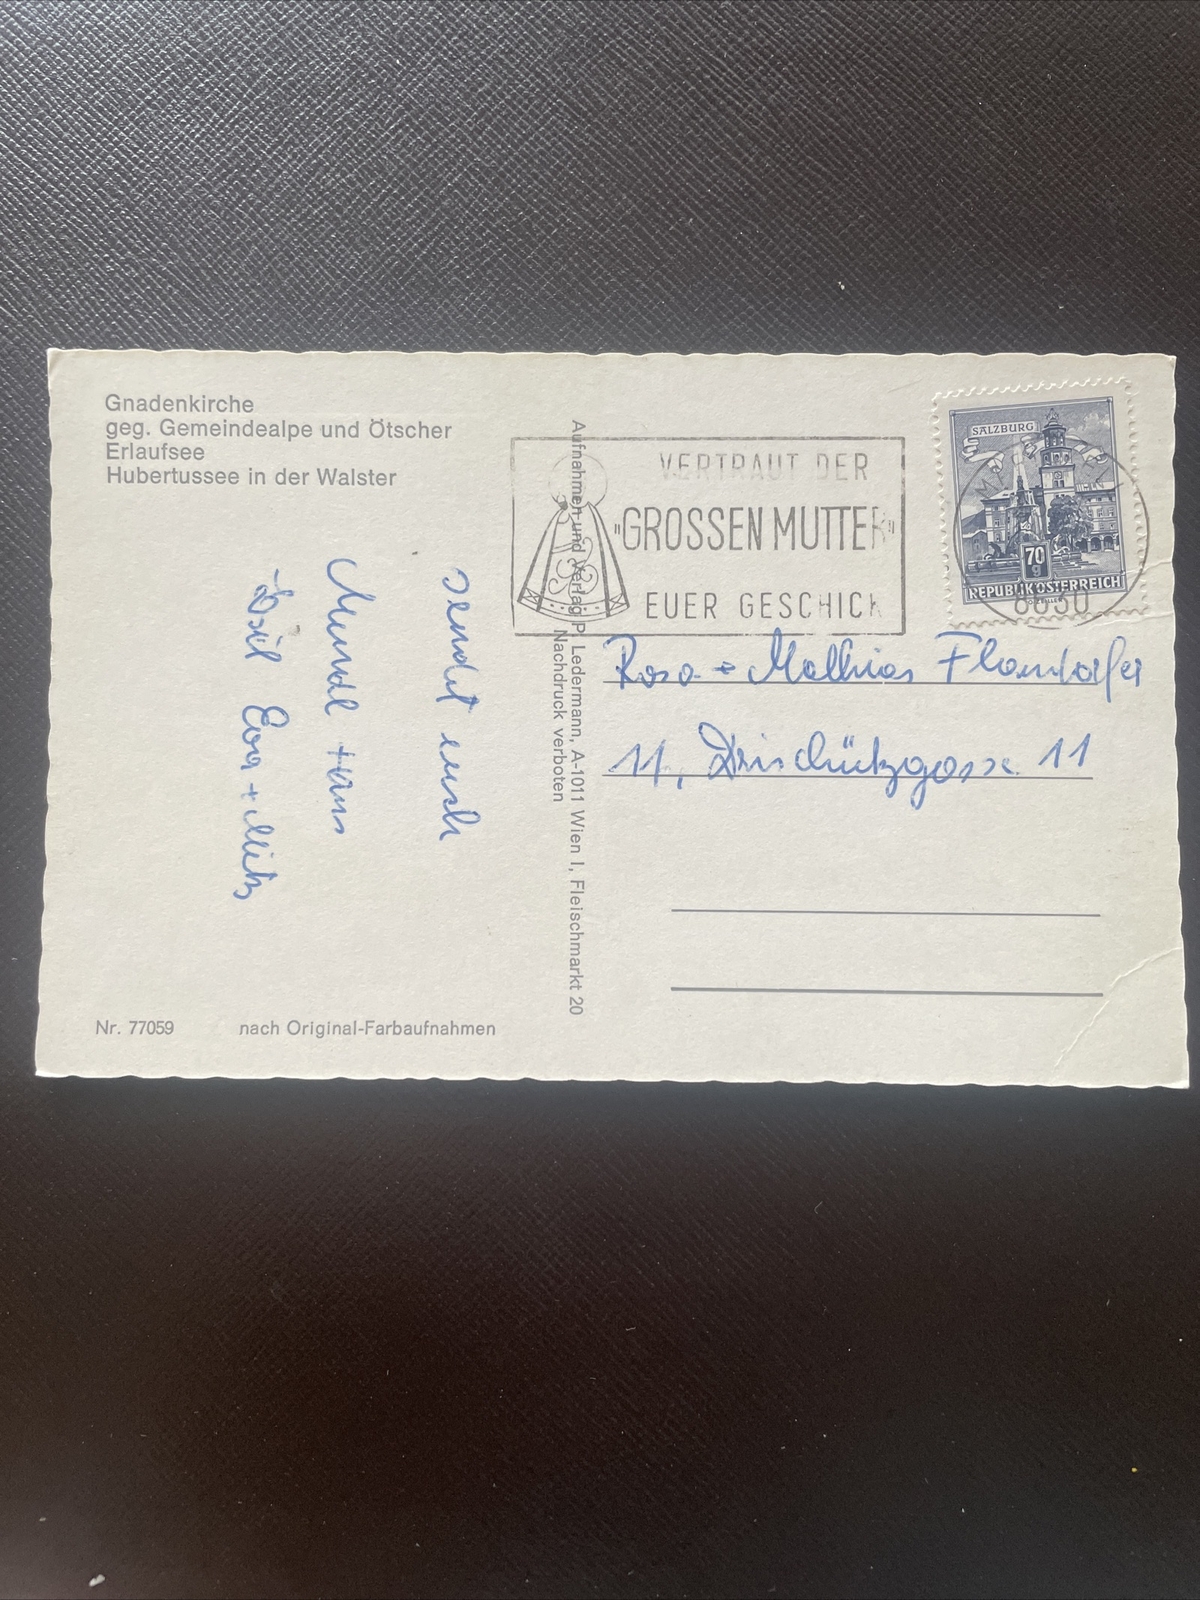 Gnadenkirche
geg. Gemeindealpe und Ötscher
Erlaufsee
Hubertussee in der Walster
sendet euch
Hans
Eva + Mitz
Nr. 77059
nach Original-Farbaufnahmen
Aufnahmen und Verlag P. Ledermann, A-1011 Wien I, Fleischmarkt 20
Nachdruck verboten
VERTRAUT DER
"GROSSEN MUTTER"
EUER GESCHICK
SALZBURG
70
g
REPUBLIK ÖSTERREICH
8630
Rosa + Mathias
11, 11